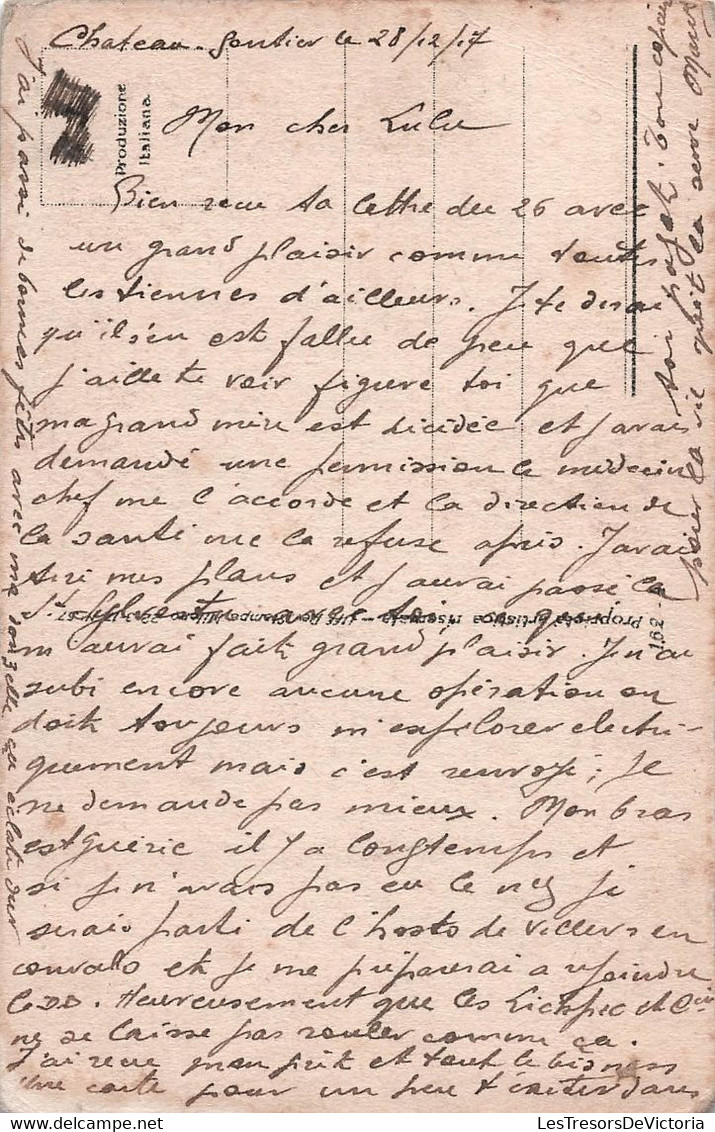 Chateau-Gontier le 28/12/17
Produzione
Italiana
Mon cher Lulu
Bien reçue ta lettre du 26 avec
un grand plaisir comme toutes
les tiennes d'ailleurs. Je te dirai
qu'il s'en est fallu de peu que
j'aille te voir figure toi que
ma grand mère est décidée et j'avais
demandé une permission le médecin
chef me l'accorde et la direction de
la santé me la refuse après. J'avais
tiré mes plans et j'aurai passé la
St Sylvestre avec toi ce qui
m'aurai fait grand plaisir. Je n'ai
subi encore aucune opération on
doit toujours m'explorer electri-
quement mais c'est renvoyé; je
ne demande pas mieux. Mon bras
est guérie il y a longtemps et
si je n'avais pas eu le nez je
serais parti de l'hosto de Villers en
convalo et je me préparerai a rejoindre
le DD. Heureusement que les et Cie
ne se laisse pas rouler comme ça.
J'ai reçue mon prêt et tout le bisness
Une carte pour un peu dans
J'ai passé de bonnes fêtes avec ma donzelle ça éclate dur
toi pajet. Ton copain
pour la vie qui la serre
Proprietà artistica riservata
162
LesTresorsDeVictoria